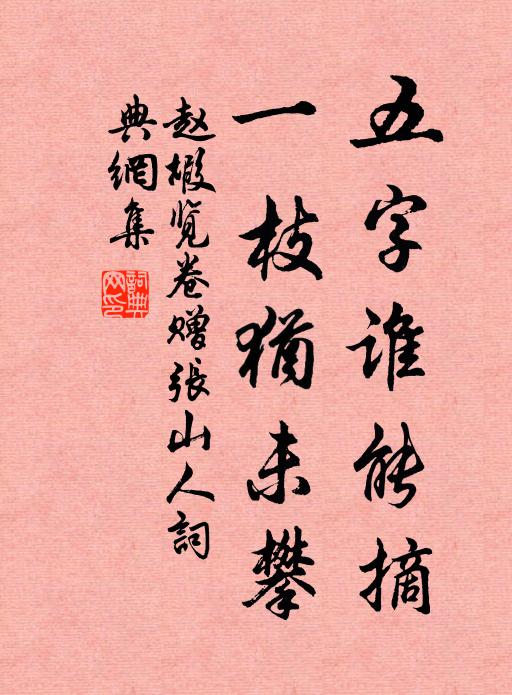 五字谁能摘
一枝犹未攀
赵嘏览卷赠張山人詞
典網集
詞典
网印